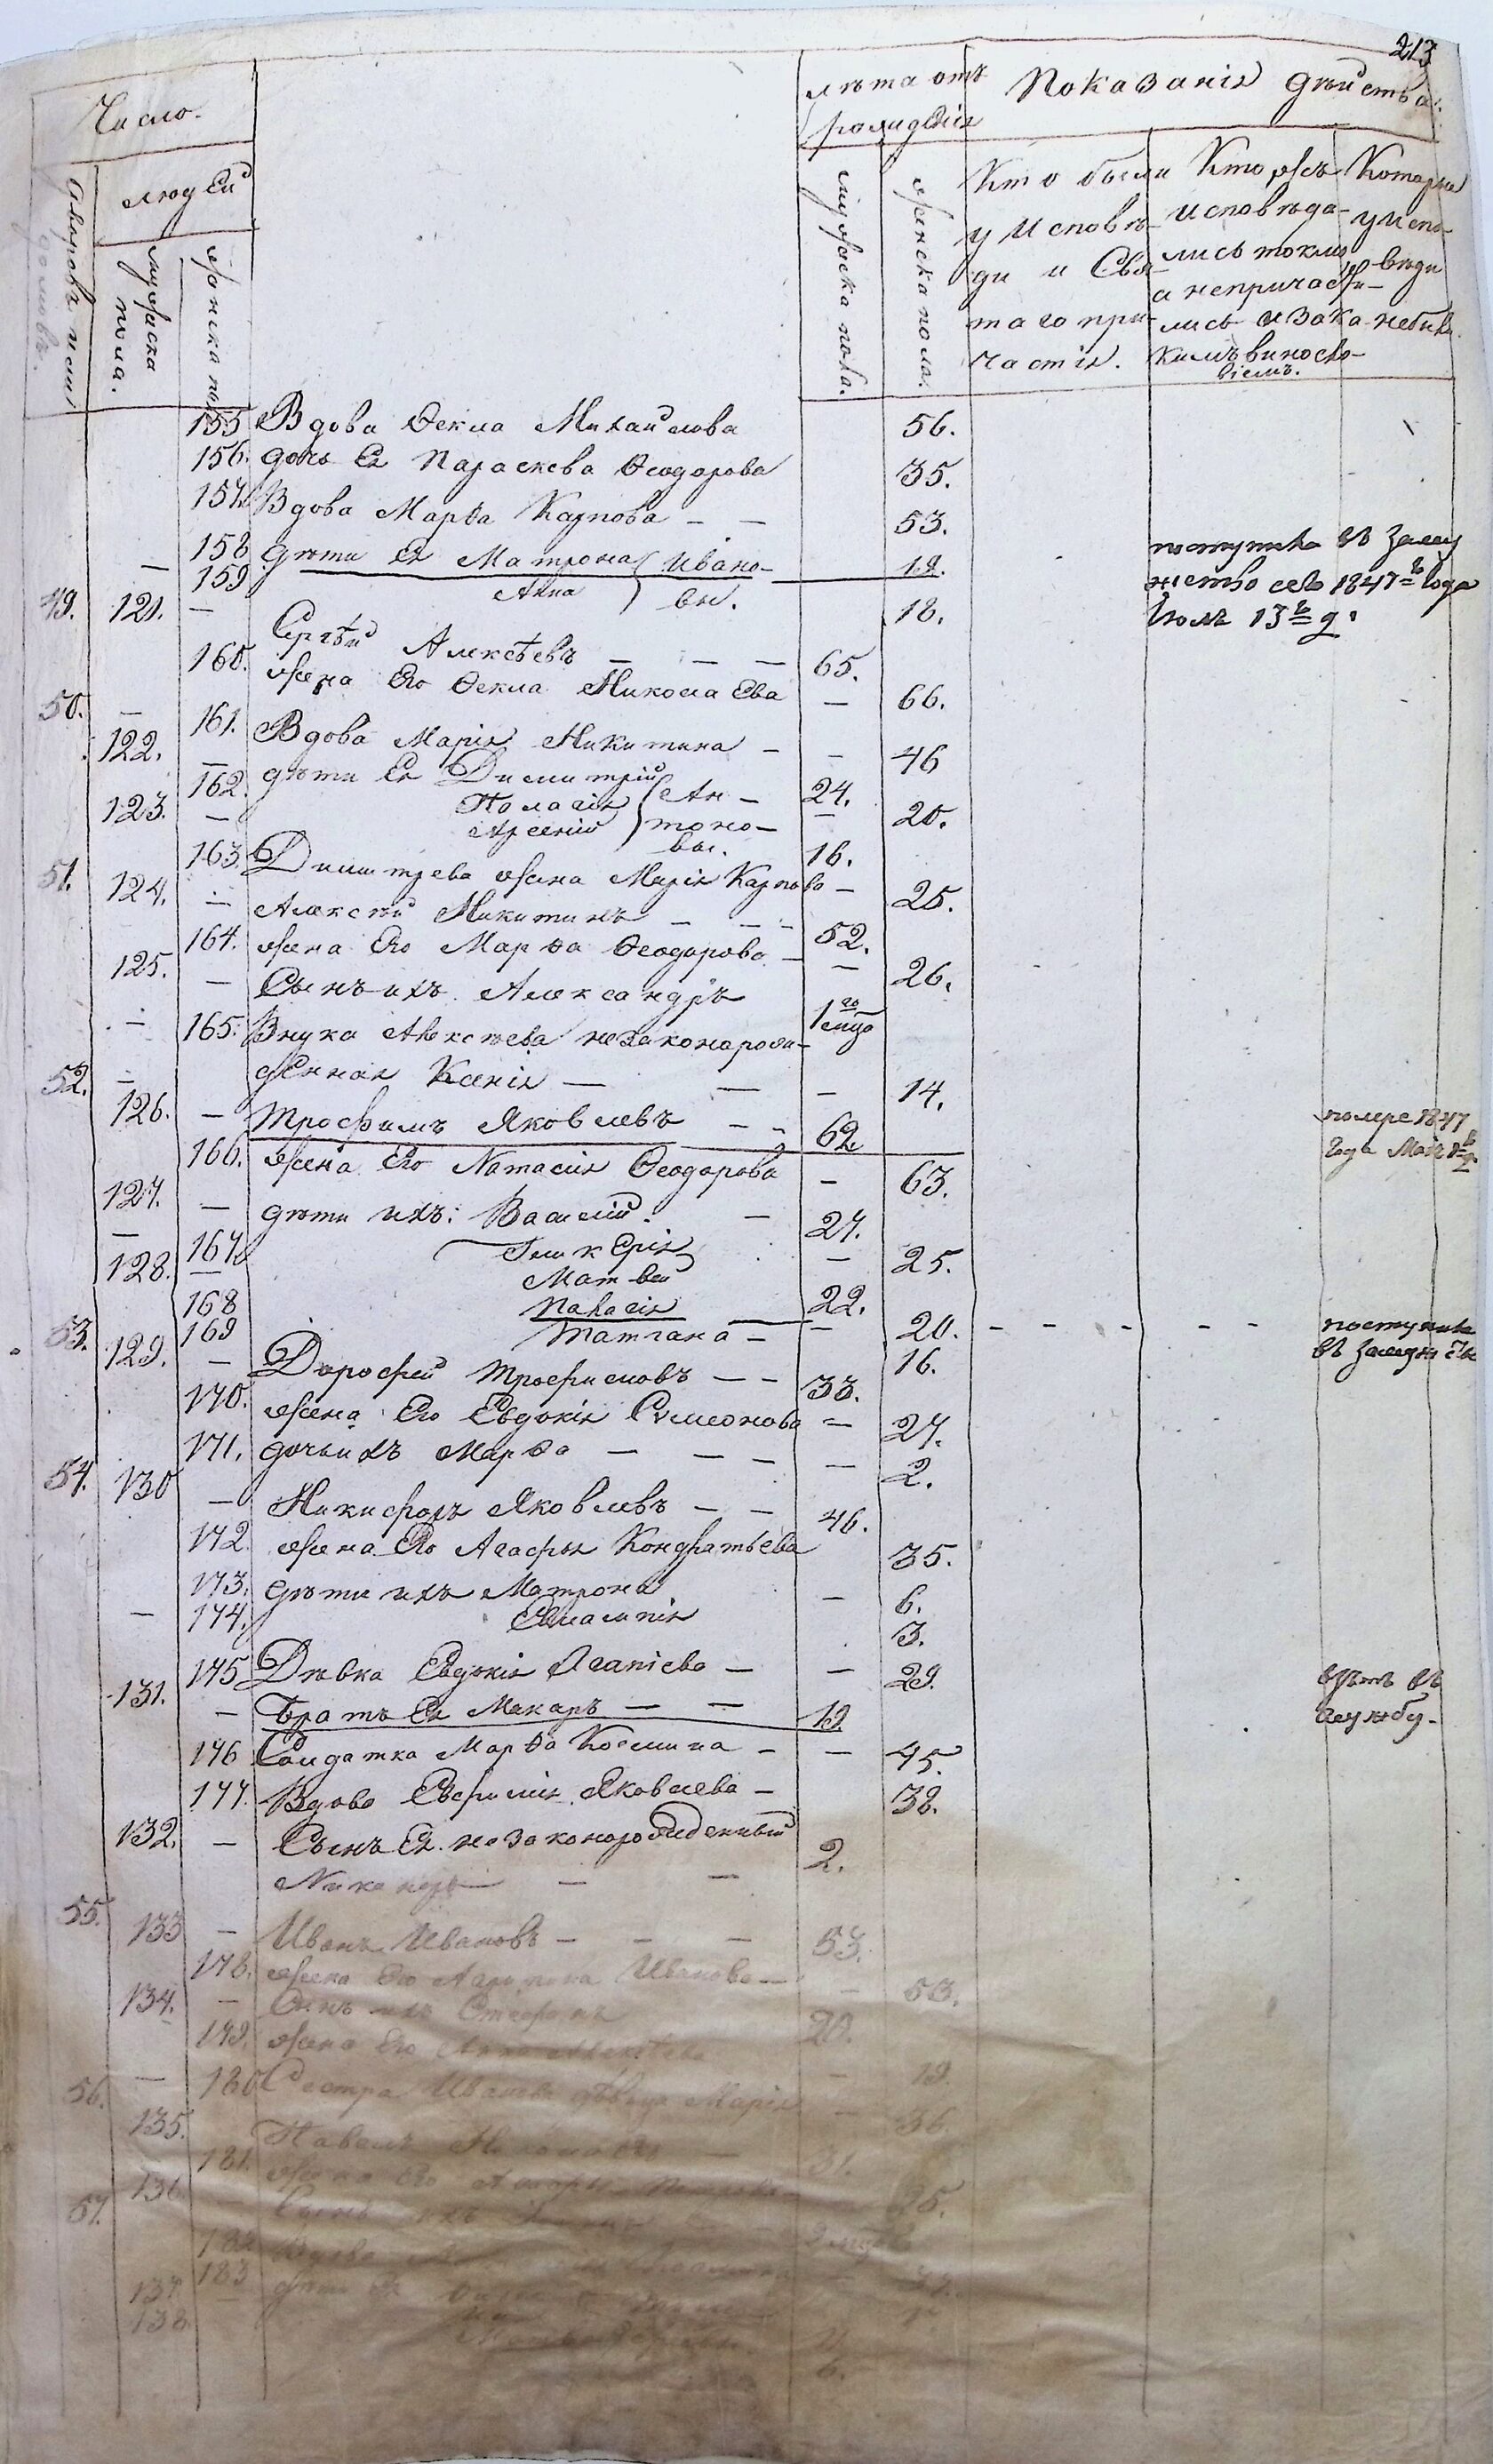 213
Число.
лѣта отъ рожденія
Показанія дѣйства:
людей
дворовъ или домовъ.
мужеска пола.
женска по
мужеска пола.
женска пола.
Кто были у Исповѣди и Святаго причастія.
Кто же исповѣдались токмо а непричастились и за какимъ виносло-віемъ.
Которые у исповѣди небыли
155 Вдова Ѳекла Михайлова 56.
156. дочь Ея Параскева Ѳеодорова 35.
157. Вдова Марѳа Карпова — — 53.
— 158 дѣти Ея Матрона Ивано- 19.
поступила въ замужество сего 1847го года Іюля 13го д.
159 Анна вы. 18.
49. 121. — Сергѣй Алексѣевъ — — — 65.
160. жена Его Ѳекла Николаева — 66.
50. — 161. Вдова Марія Никитина — — 46
122. — дѣти Ея Димитрій Ан- 24.
162. Пелагія тоно- — 20.
123. — Арсеній вы. 16.
163 Димитрева жена Марія Карпова — 25.
51. 124. — Алексѣй Никитинъ — — — 52.
164. жена Его Марѳа Ѳеодорова — — 26.
125. — Сынъ ихъ Александръ 1го
— 165. Внука Алексѣева незаконорож-
денная Ксенія — — — 14.
52. 126. — Трофимъ Яковлевъ — — 62.
помре 1847 года Маія
166. жена Его Наталія Ѳеодорова — 63.
127. — дѣти ихъ: Василій. — 27.
— 167. Гликерія — 25.
128. — Матвей 22.
168 Палагія — 20. — — — — —
поступила въ замужство
169 Татіана — 16.
53. 129. — Дорофей Трофимовъ — — 33.
170. жена Его Евдокія Симеонова — 27.
171. дочь ихъ Марѳа — — — — 2.
54. 130 — Никифоръ Яковлевъ — — 46.
172. жена Его Агафья Кондратьева 35.
173. дѣти ихъ Матрона — 6.
— 174. Евлампія 3.
175 Дѣвка Евдокія Агапіева — — 29.
131. — Братъ Ея Макаръ — — 19
взятъ въ службу.
176 Салдатка Марѳа Космина — — 45.
177. Вдова Евфимія Яковлева — 38.
132. — Сынъ Ея незаконорожденный 2.
Никаноръ — —
55. 133 — Иванъ Ивановъ — — — 53.
178. жена Его Агрипина Иванова — — 53.
134. — Сынъ ихъ Стефанъ 20.
179. жена Его Анна Алексѣева — 19.
— 180 Сестра Иванова дѣвица Марія — 36.
56. 135. Павелъ 31.
181. жена Его 25.
136 — Сынъ ихъ
57. 182 Вдова
183 дѣти Ея
137
138.